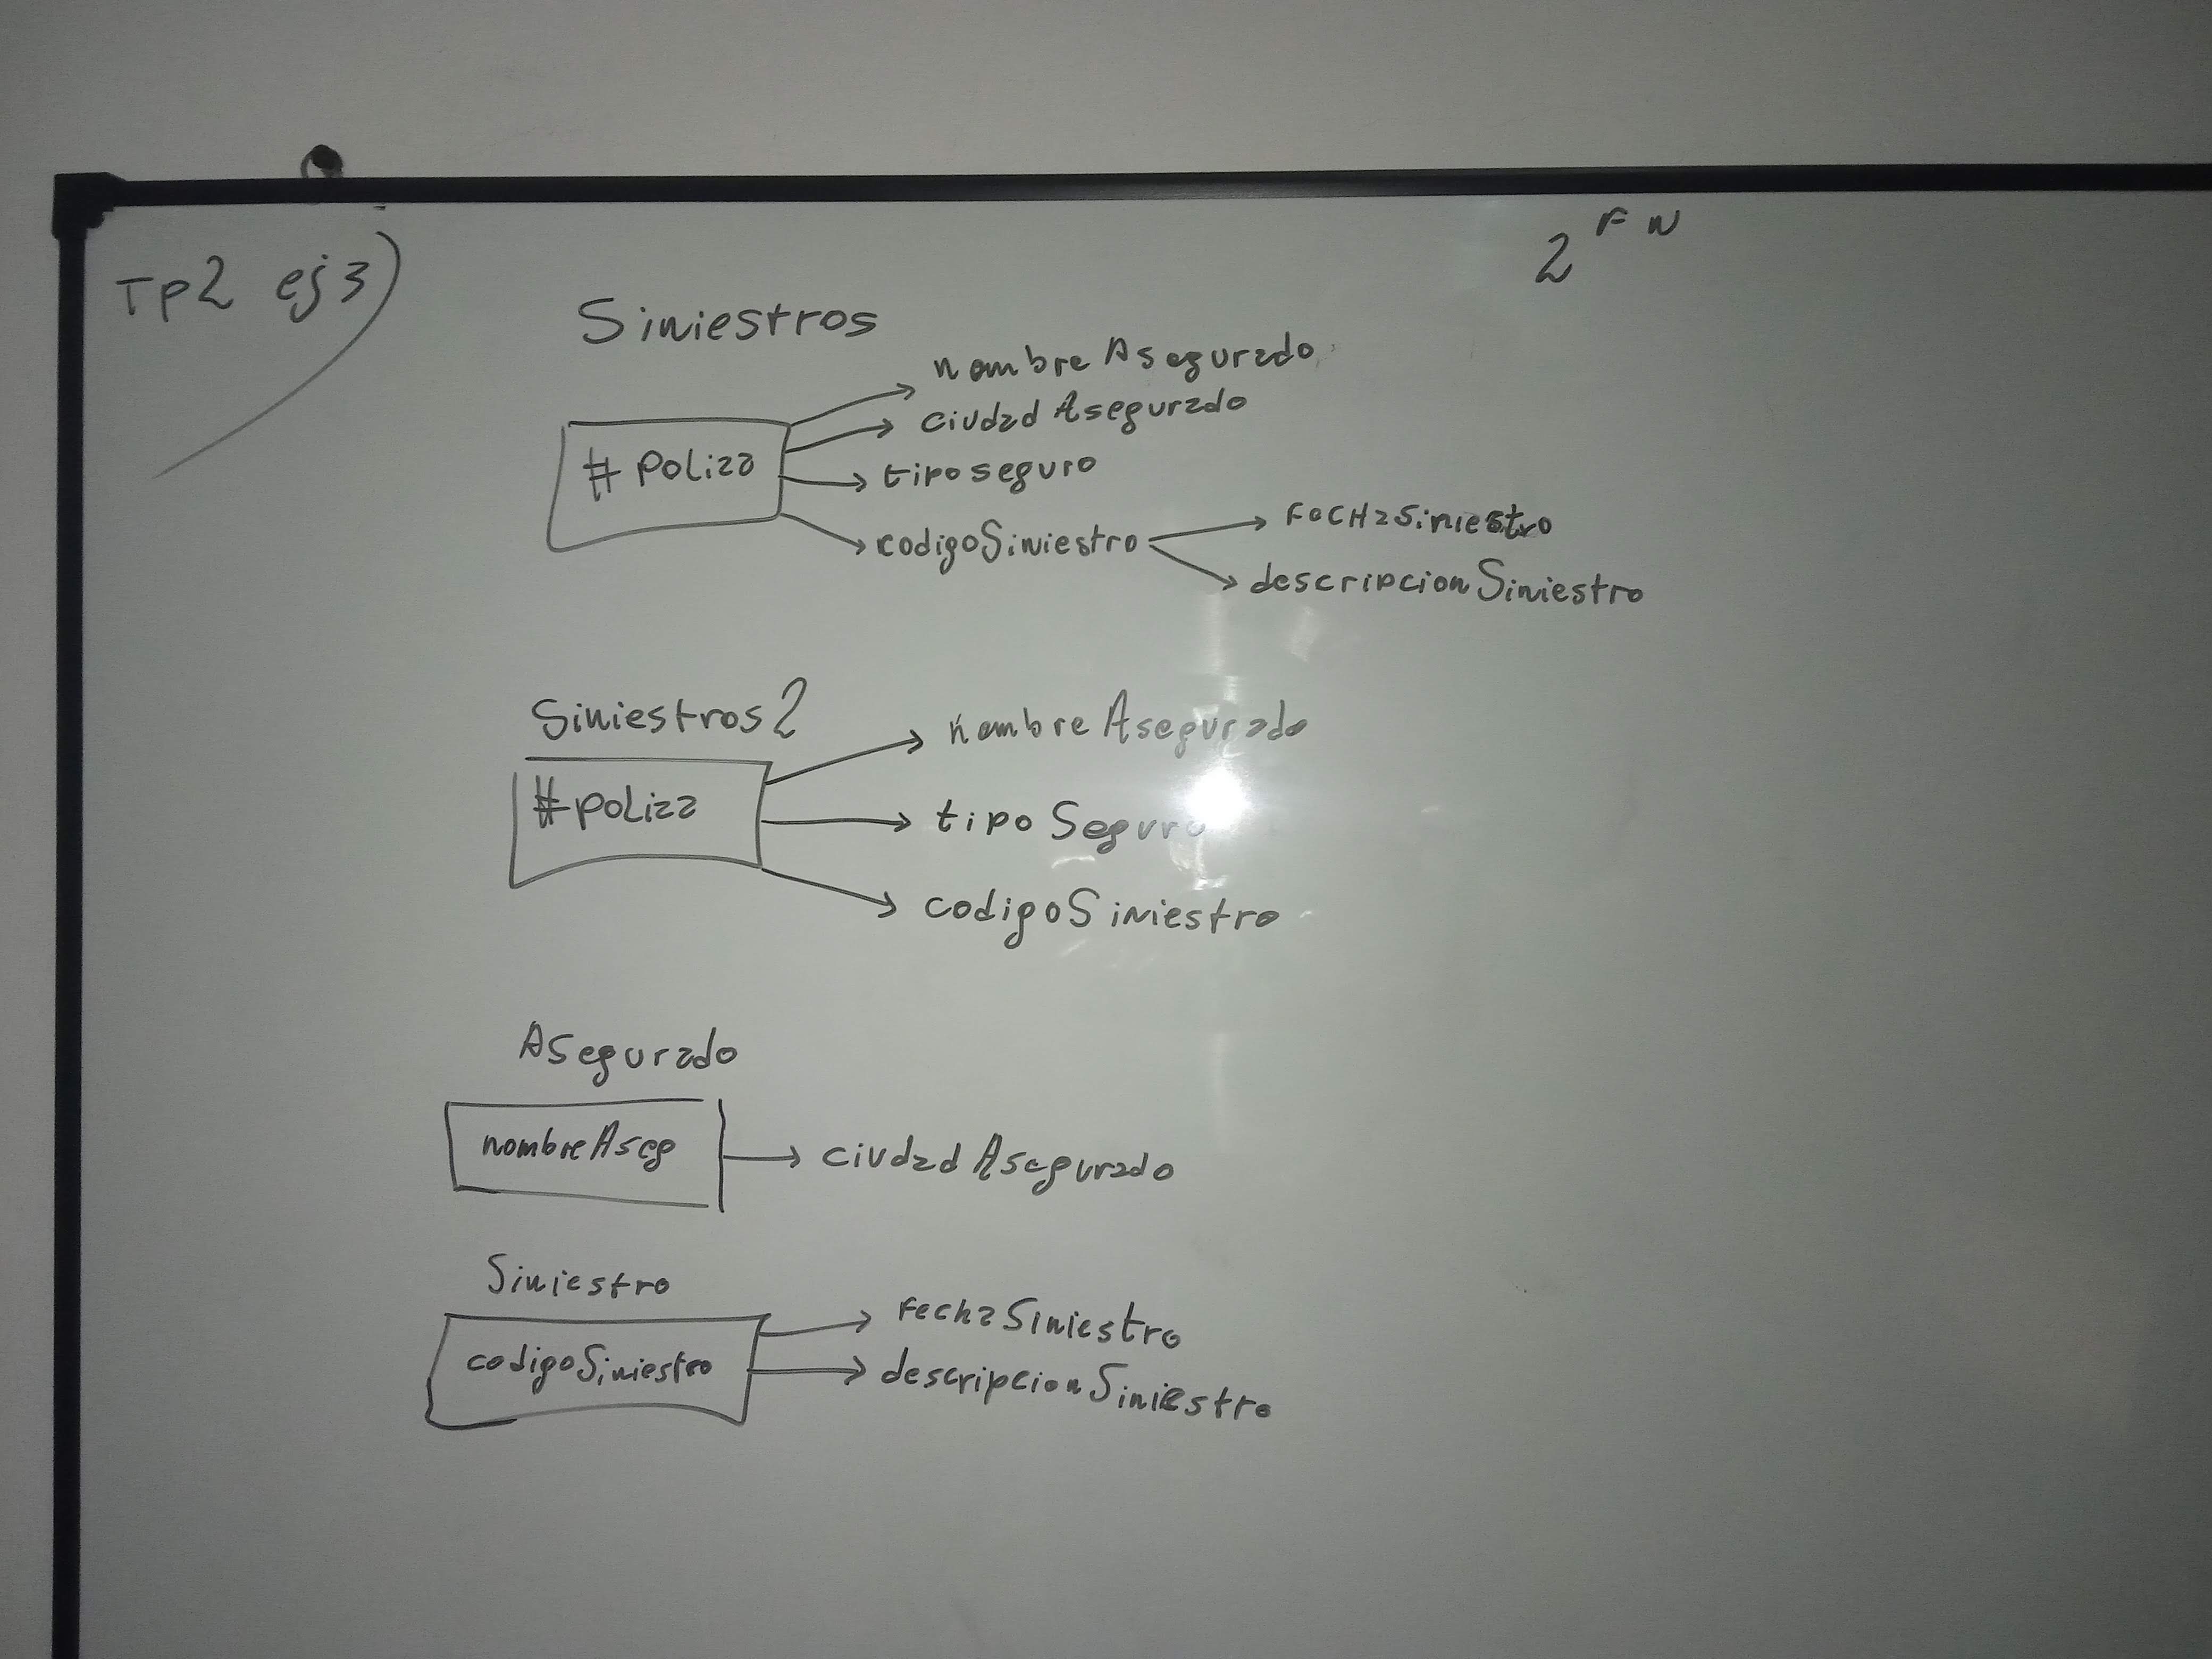 Tp2 ej3)
2 FN
Siniestros
#poliza
nombreAsegurado
ciudadAsegurado
tiposeguro
codigoSiniestro
FeCHaSiniestro
descripcionSiniestro
Siniestros2
#poliza
nombreAsegurado
tipoSeguro
codigoSiniestro
Asegurado
nombreAseg
ciudadAsegurado
Siniestro
codigoSiniestro
FechaSiniestro
descripcionSiniestro